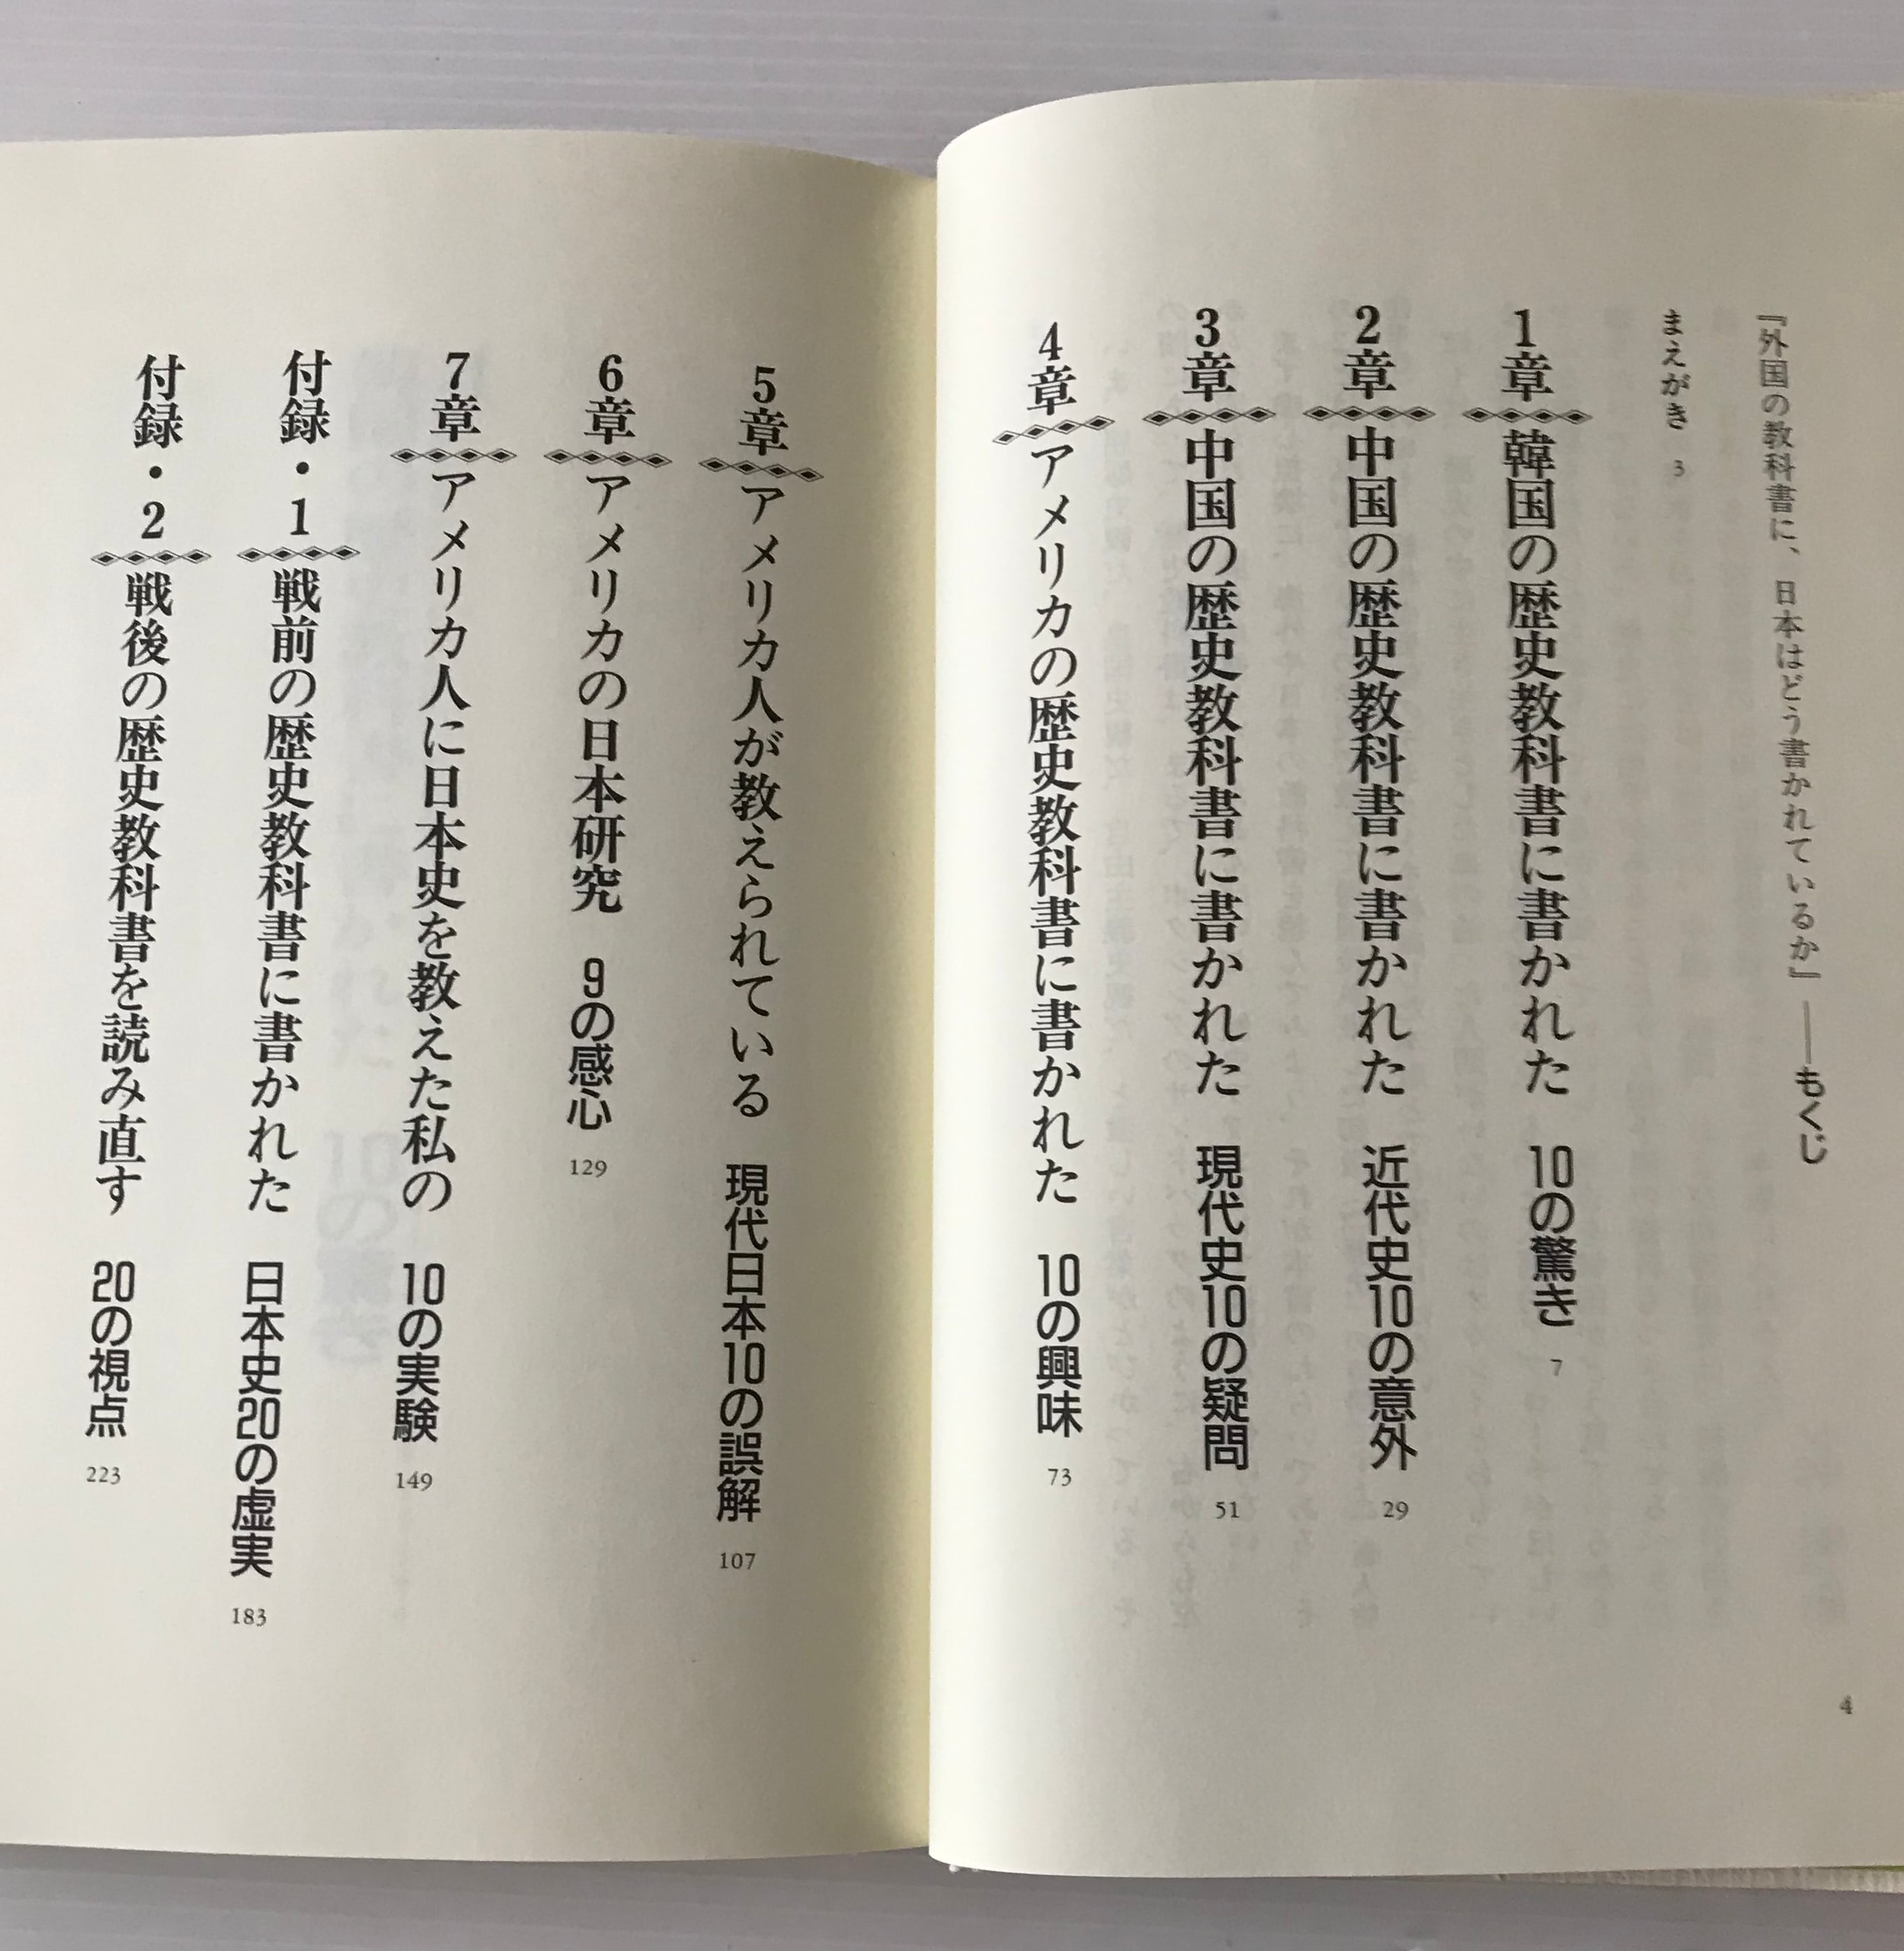 『外国の教科書に、日本はどう書かれているか』――もくじ
まえがき 3
1章 韓国の歴史教科書に書かれた 10の驚き 7
2章 中国の歴史教科書に書かれた 近代史10の意外 29
3章 中国の歴史教科書に書かれた 現代史10の疑問 51
4章 アメリカの歴史教科書に書かれた 10の興味 73
4
5章 アメリカ人が教えられている 現代日本10の誤解 107
6章 アメリカの日本研究 9の感心 129
7章 アメリカ人に日本史を教えた私の 10の実験 149
付録・1 戦前の歴史教科書に書かれた 日本史20の虚実 183
付録・2 戦後の歴史教科書を読み直す 20の視点 223